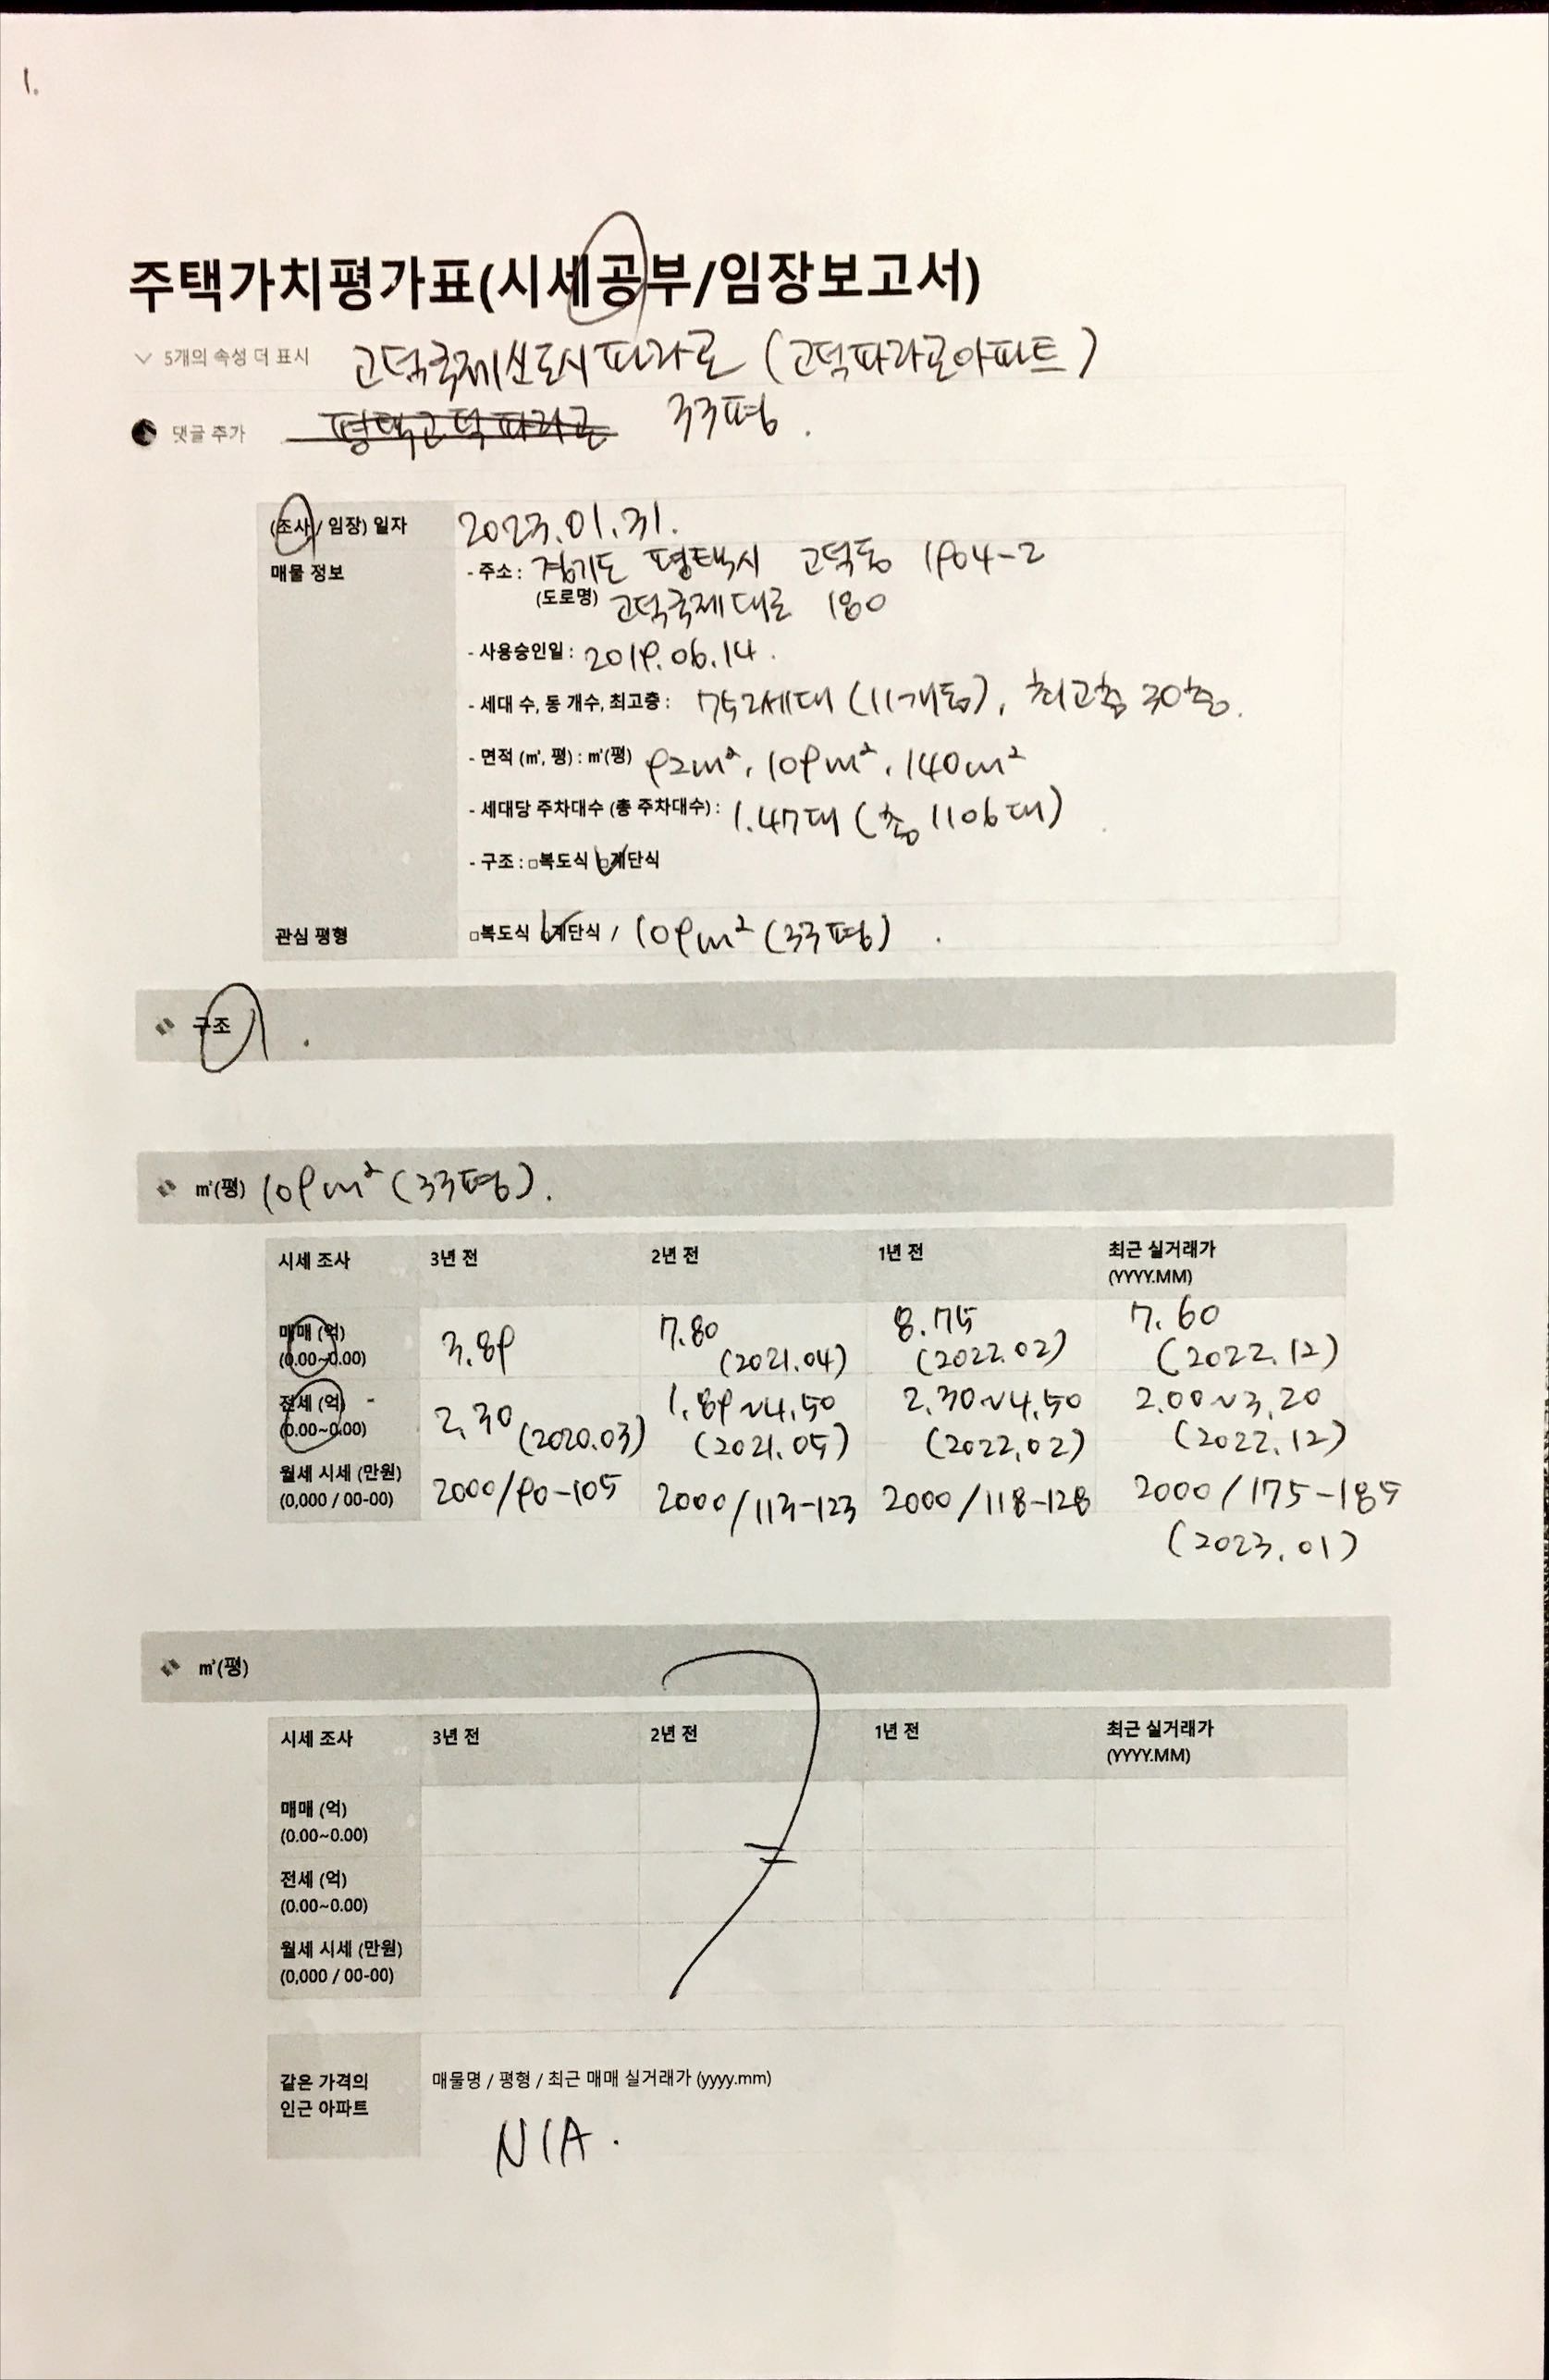 1.
주택가치평가표(시세공부/임장보고서)
5개의 속성 더 표시 고덕국제신도시파라곤 (고덕파라곤아파트)
댓글 추가 평택고덕파라곤 33평.
(조사/ 임장) 일자 2023.01.31.
매물 정보 - 주소 : 경기도 평택시 고덕동 1904-2
(도로명) 고덕국제대로 180
- 사용승인일 : 2019.06.14.
- 세대 수, 동 개수, 최고층 : 752세대 (11개동), 최고층 30층.
- 면적 (㎡, 평) : ㎡(평) 92m², 109m², 140m²
- 세대당 주차대수 (총 주차대수) : 1.47대 (총 1106대)
- 구조 : □복도식 ☑계단식
관심 평형 □복도식 ☑계단식 / 109m² (33평).
구조
㎡(평) 109m² (33평).
시세 조사 3년 전 2년 전 1년 전 최근 실거래가
(YYYY.MM)
매매 (억) 3.89 7.80 8.75 7.60
(0.00~0.00) (2021.04) (2022.02) (2022.12)
전세 (억) 2.30 1.89~4.50 2.30~4.50 2.00~3.20
(0.00~0.00) (2020.03) (2021.05) (2022.02) (2022.12)
월세 시세 (만원) 2000/90-105 2000/113-123 2000/118-128 2000/175-185
(0,000 / 00-00) (2023.01)
㎡(평)
시세 조사 3년 전 2년 전 1년 전 최근 실거래가
(YYYY.MM)
매매 (억)
(0.00~0.00)
전세 (억)
(0.00~0.00)
월세 시세 (만원)
(0,000 / 00-00)
같은 가격의 매물명 / 평형 / 최근 매매 실거래가 (yyyy.mm)
인근 아파트
N/A.